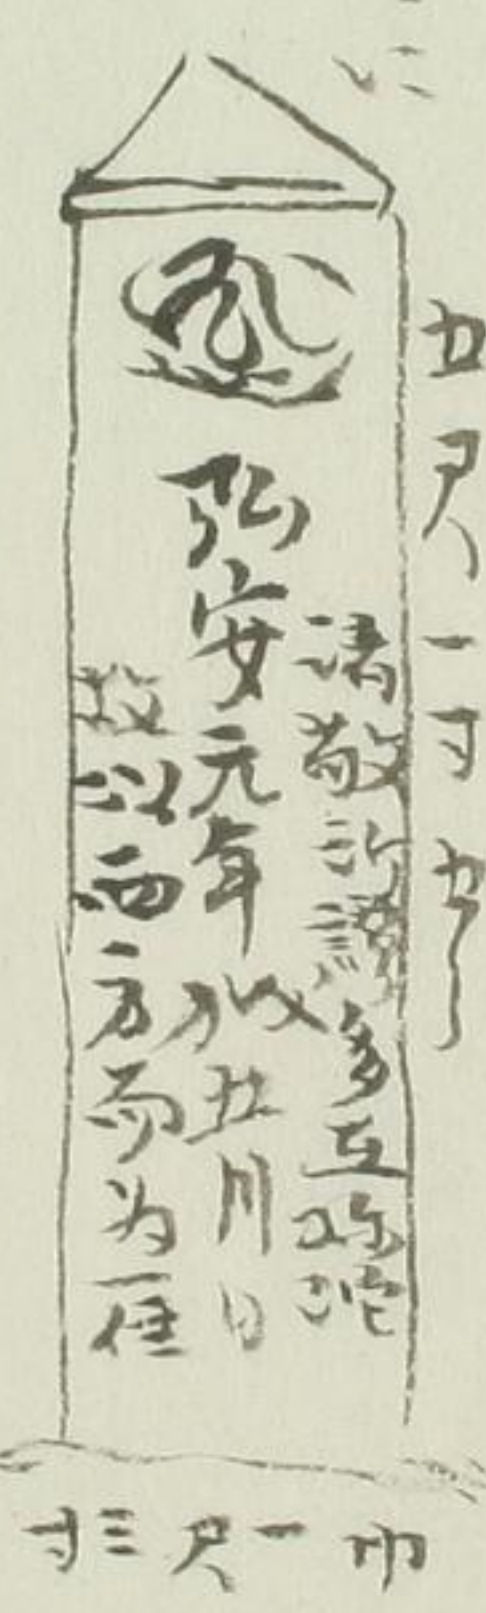 に
五尺一寸五
諸教所讃多在弥陀
弘安元年五月日
故以西方而为一准
巾一尺三寸